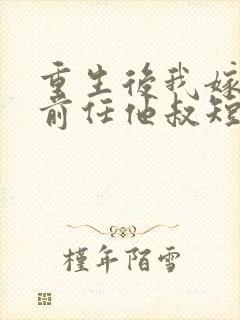 重生後我嫁
前任他叔短
槿年陌雪